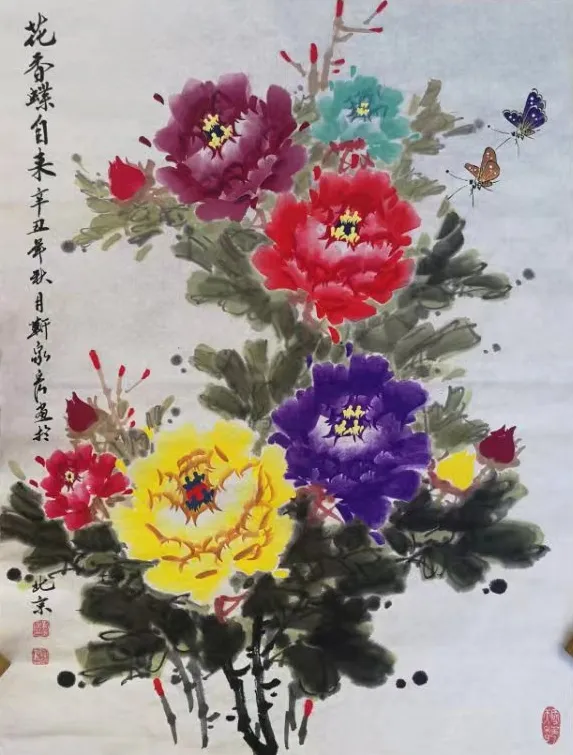 花香蝶自来辛丑年秋月靳家彦画於
北京